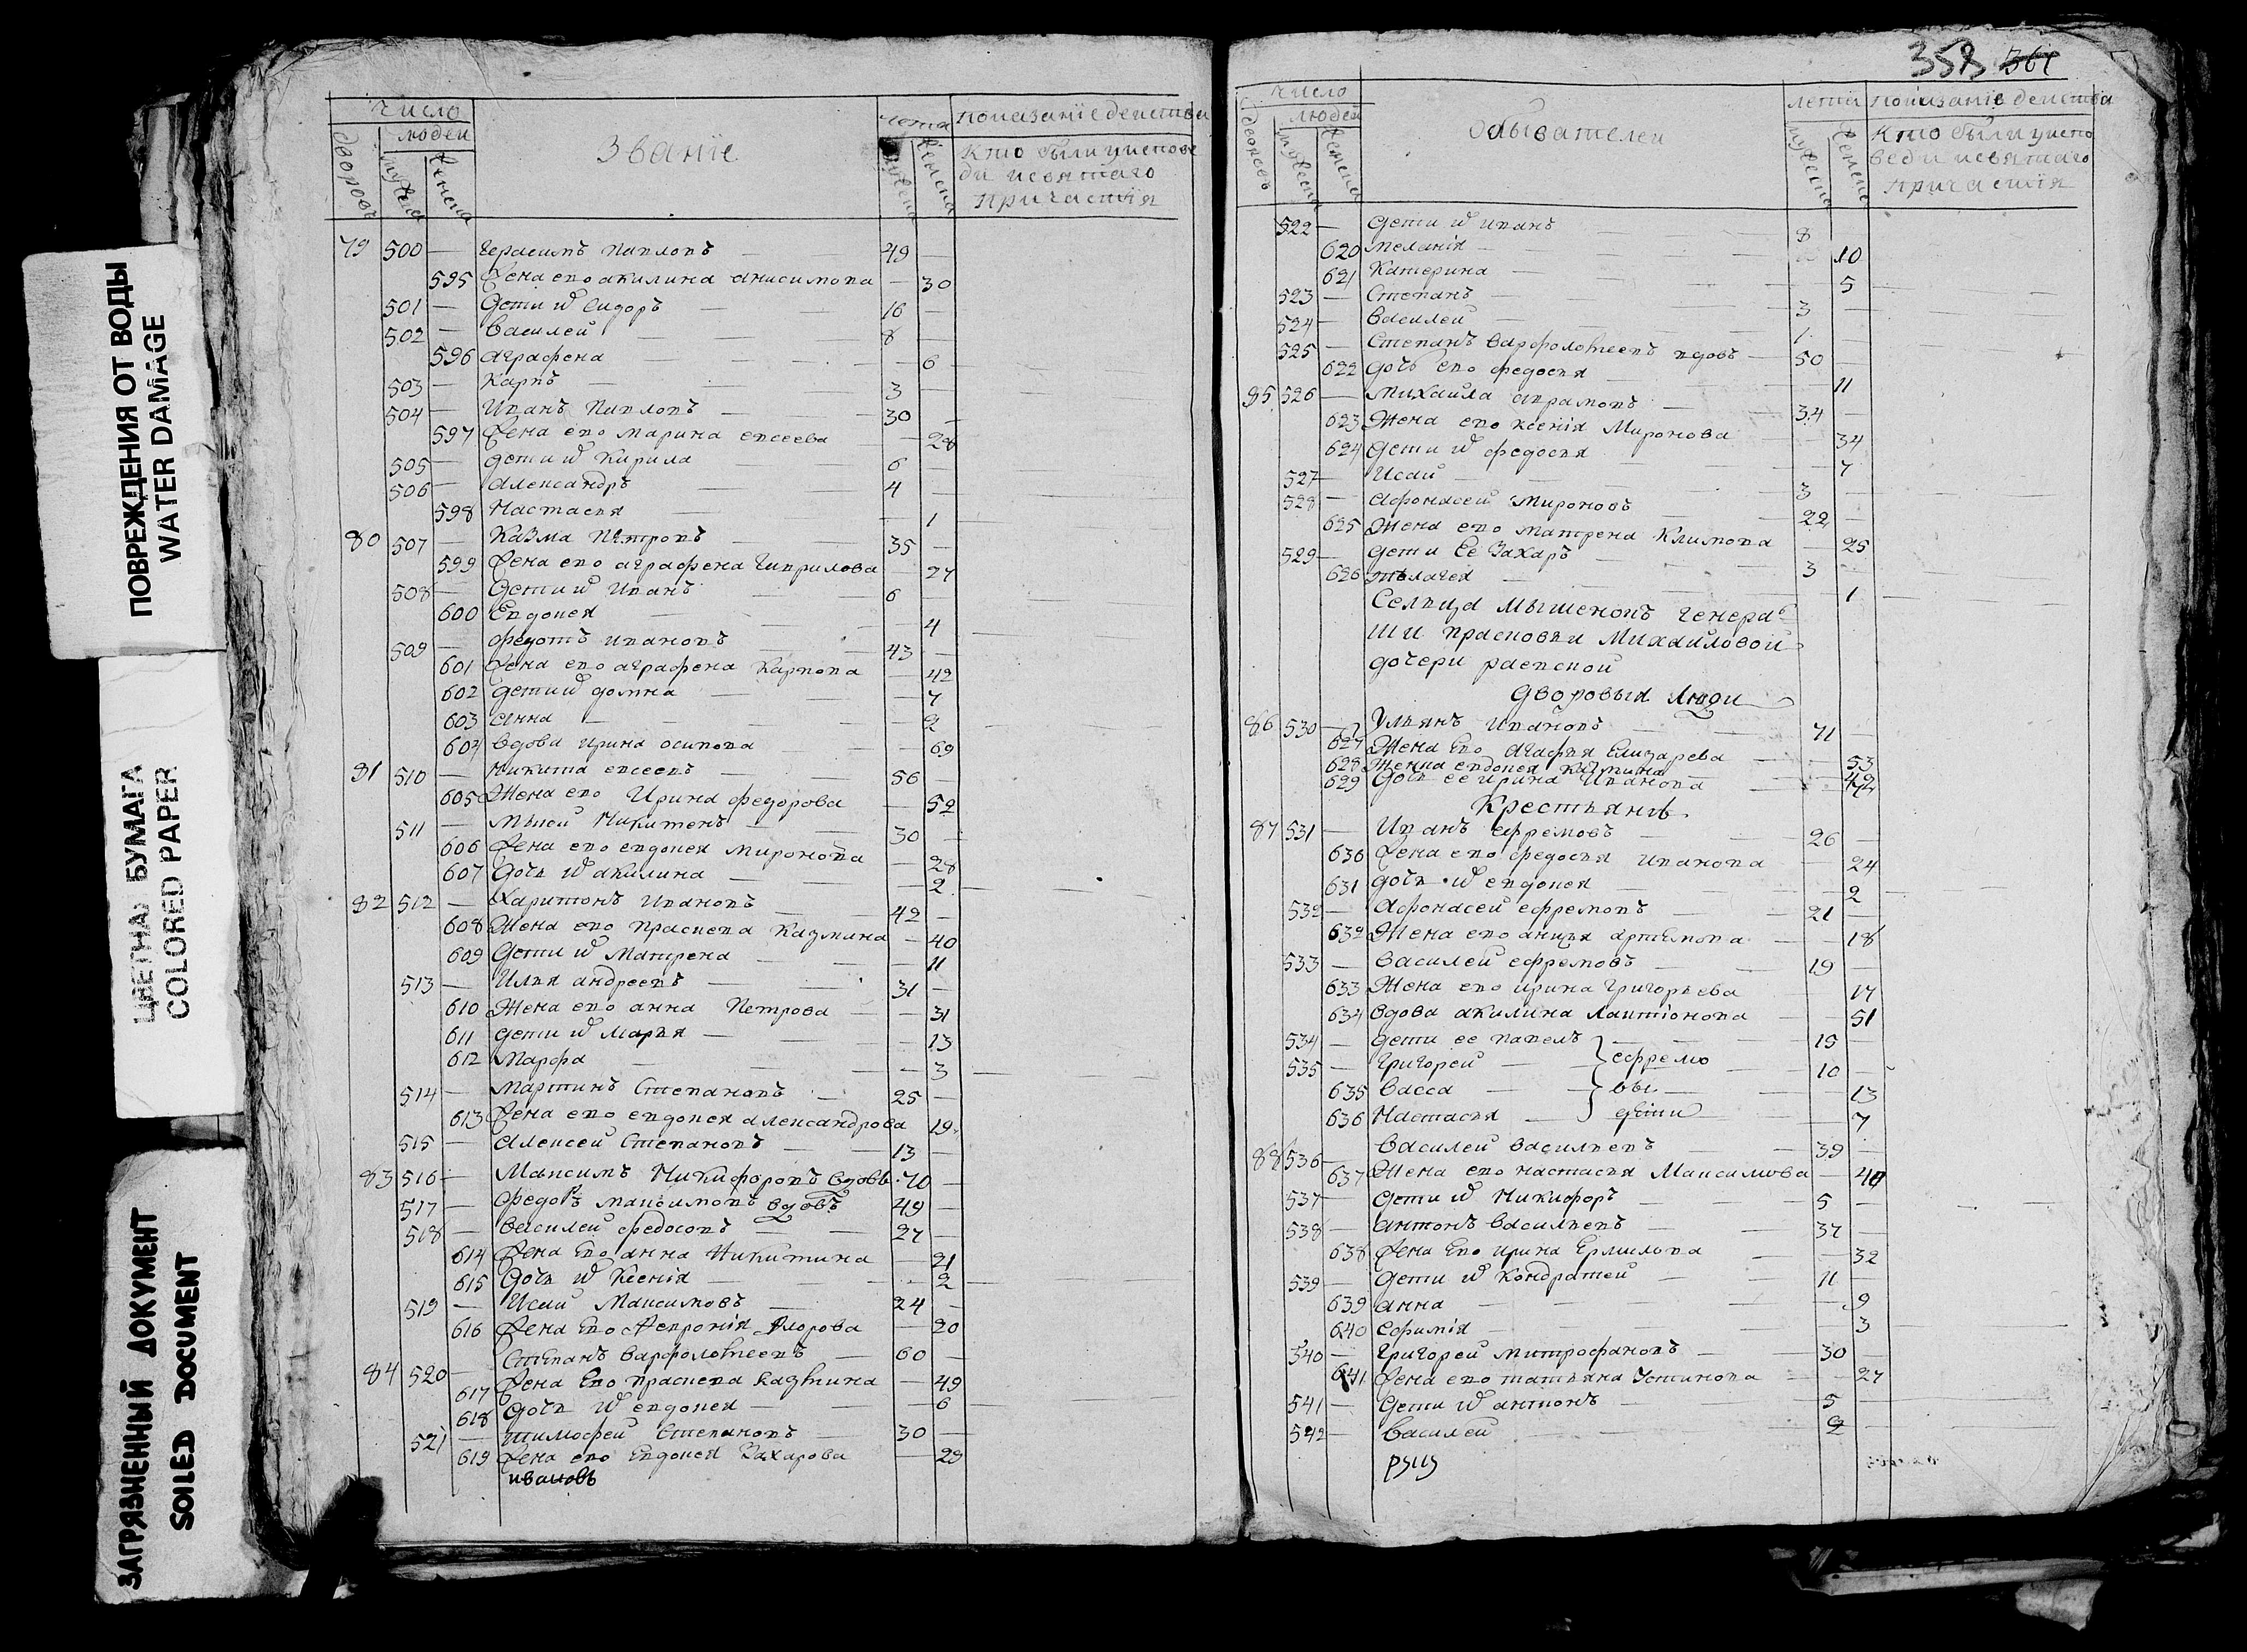 ПОВРЕЖДЕНИЯ ОТ ВОДЫ
WATER DAMAGE
ЦВЕТНАЯ БУМАГА
COLORED PAPER
ЗАГРЯЗНЕННЫЙ ДОКУМЕНТ
SOILED DOCUMENT
число людей
дворовъ мужеска женска
Званіе
лета мужеска женска
показаніе действа
Кто были у испове
ди и святаго
причастія
79 500 — Герасимъ Павловъ — 49 —
595 Жена ево акилина анисимова — 30
501 — Дети ѿ Сидоръ — 16 —
502 — Василей — 8 —
596 аграфена — 6
503 — Карпъ — 3
504 — Иванъ Павловъ — 30 —
597 Жена ево марина евсеева — 28
505 — дети ѿ Кирила — 6 —
506 — александръ — 4 —
598 Настасья — 1
80 507 — Казма Петровъ — 35 —
599 Жена ево аграфена Гаврилова — 27
508 — Дети ѿ Иванъ — 6
600 Евдокея — 4
509 — федотъ ивановъ — 43 —
601 Жена ево аграфена Карпова — 42
602 дети ѿ домна — 7
603 анна — 2
604 вдова ирина осипова — 69
81 510 — никита евсеевъ — 56 —
605 Жена ево Ирина федорова — 52
511 — Никитенъ — 30 —
606 Жена ево евдокея миронова — 28
607 дочь ѿ акилина — 2
82 512 — Харитонъ Ивановъ — 42 —
608 Жена ево прасковa Казмина — 40
609 Дети ѿ Матрена — 11
513 — Илья андреевъ — 31 —
610 Жена ево анна Петрова — 31
611 дети ѿ марья — 13
612 Марфа — 3
514 — Мартинъ Степановъ — 25 —
613 Жена ево евдокея александрова 19
515 — алексей Степановъ — 13 —
83 516 — Максимъ Никифоровъ вдовъ 70 —
517 — Федоръ максимовъ вдовъ 49 —
518 — василей федосовъ — 27 —
614 Жена Ево анна Никитина — 21
615 Дочь ѿ Ксенія — 2
519 — Исай Максимовъ — 24 —
616 Жена Ево Февронія Флорова — 20
84 520 — Степанъ варфоломеевъ — 60 —
617 Жена Ево прасковa казмина — 49
618 дочь ѿ евдокея — 6
521 — тимофей Степановъ — 30 —
619 Жена ево Евдокея Захарова — 29
ивановъ
358 361
число людей
дворовъ мужеска женска
Обывателей
лета мужеска женска
показаніе действа
Кто были у испо
веди и святаго
причастія
522 — дети ѿ иванъ — 8
620 меланія — 10
621 Катерина — 5
523 — Степанъ — 3 —
524 — василей — 1
525 — Степанъ варфоломеевъ вдовъ — 50 —
622 дочь ево федосья — 11
85 526 — михайла аврамовъ — 34 —
623 Жена ево ксенія Миронова — 34
624 дети ѿ федосья — 7
527 — Исай — 3
528 — афонасей Мироновъ — 22 —
625 Жена ево матрена Климова — 25
529 — дети Ее Захаръ — 3 —
626 пелагея — 1
Селвца мышенокъ генера
ши прасковьи Михайловой
дочери раевской
дворовыя люди
86 530 — Ульянъ Ивановъ — 71 —
627 Жена Ево агафья Елизарева — 53
628 Женка евдокея казмина — 42
629 дочь ее ирина Иванова —
Крестьянѣ
87 531 — Иванъ ефремовъ — 26 —
630 Жена ево федосья иванова — 24
631 дочь ѿ евдокея — 2
532 — афонасей ефремовъ — 21 —
632 Жена ево анися артемова — 18
533 — василей ефремовъ — 19 —
633 Жена ево ирина григорьева — 17
634 вдова акилина лактіонова — 51
534 — дети ее павелъ — 15 —
535 — григорей — ефремо — 10 —
635 васса — вы — 13
636 Настасья — дети — 7
88 536 — василей васильевъ — 39 —
637 Жена ево настасья Максимова — 40
537 — дети ѿ Никифоръ — 5 —
538 — антонъ васильевъ — 37 —
638 Жена Ево ирина Ермилова — 32
539 — дети ѿ Кондратей — 11 —
639 анна — 9
640 ефимія — 3
540 — григорей митрофановъ — 30 —
641 Жена ево татьяна Устинова — 27
541 — дети ѿ антонъ — 5 —
542 — василей — 2 —